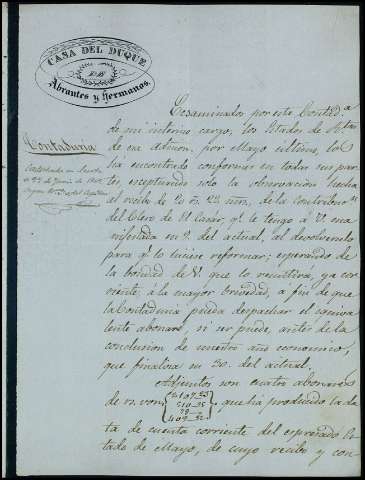 CASA DEL DUQUE
DE
Abrantes y Hermanos.
Contaduría
Contestado en
Ecsaminados por esta Contad.ª
de mi interino cargo, los Estados de
de esa Admon. por Mayo último, los
ha encontrado conformes en todas sus par
tes, esceptuando solo la observacion hecha
al recibo de 20 rs. 22 mrs. de la Contribuc.n
del Clero de El Casar, q.e le tengo á V. ma
nifestada en 9. del actual, al devolverselo
para q.e lo hiciese reformar; esperando de
la bondad de V. que lo remitirá, ya cor
riente, á la mayor brevedad, á fin de que
la Contaduría pueda despachar el equiva
lente abonaré, si ser puede, antes de la
conclusion de nuestro año economico,
que finaliza en 30. del actual.
Adjuntos son cuatro abonarés
de rs. von. que ha producido la da
ta de cuenta corriente del espresado Es
tado de Mayo, de cuyo recibo y con